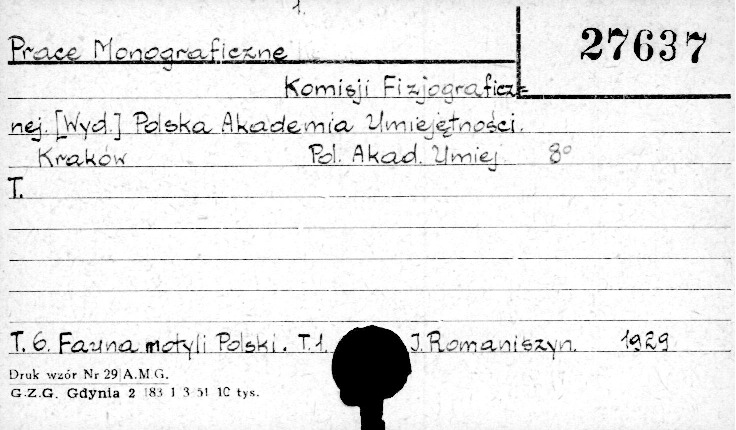 1.
27637
Prace Monograficzne
Komisji Fizjograficz=
nej. [Wyd.] Polska Akademia Umiejętności.
Kraków Pol. Akad. Umiej 8°
T.
T. 6. Fauna motyli Polski. T.1. J. Romaniszyn. 1929
Druk wzór Nr 29 A.M.G.
G.Z.G. Gdynia 2 183 1 3 51 10 tys.